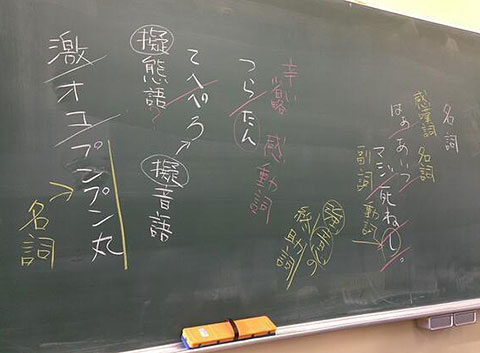 名詞
感嘆詞 名詞
はぁ あいつ
マジ死ねし。
副詞 動詞
辛い 省略 感動詞
つらたん
てへぺろ
擬態語 擬音語
激オコプンプン丸
名詞